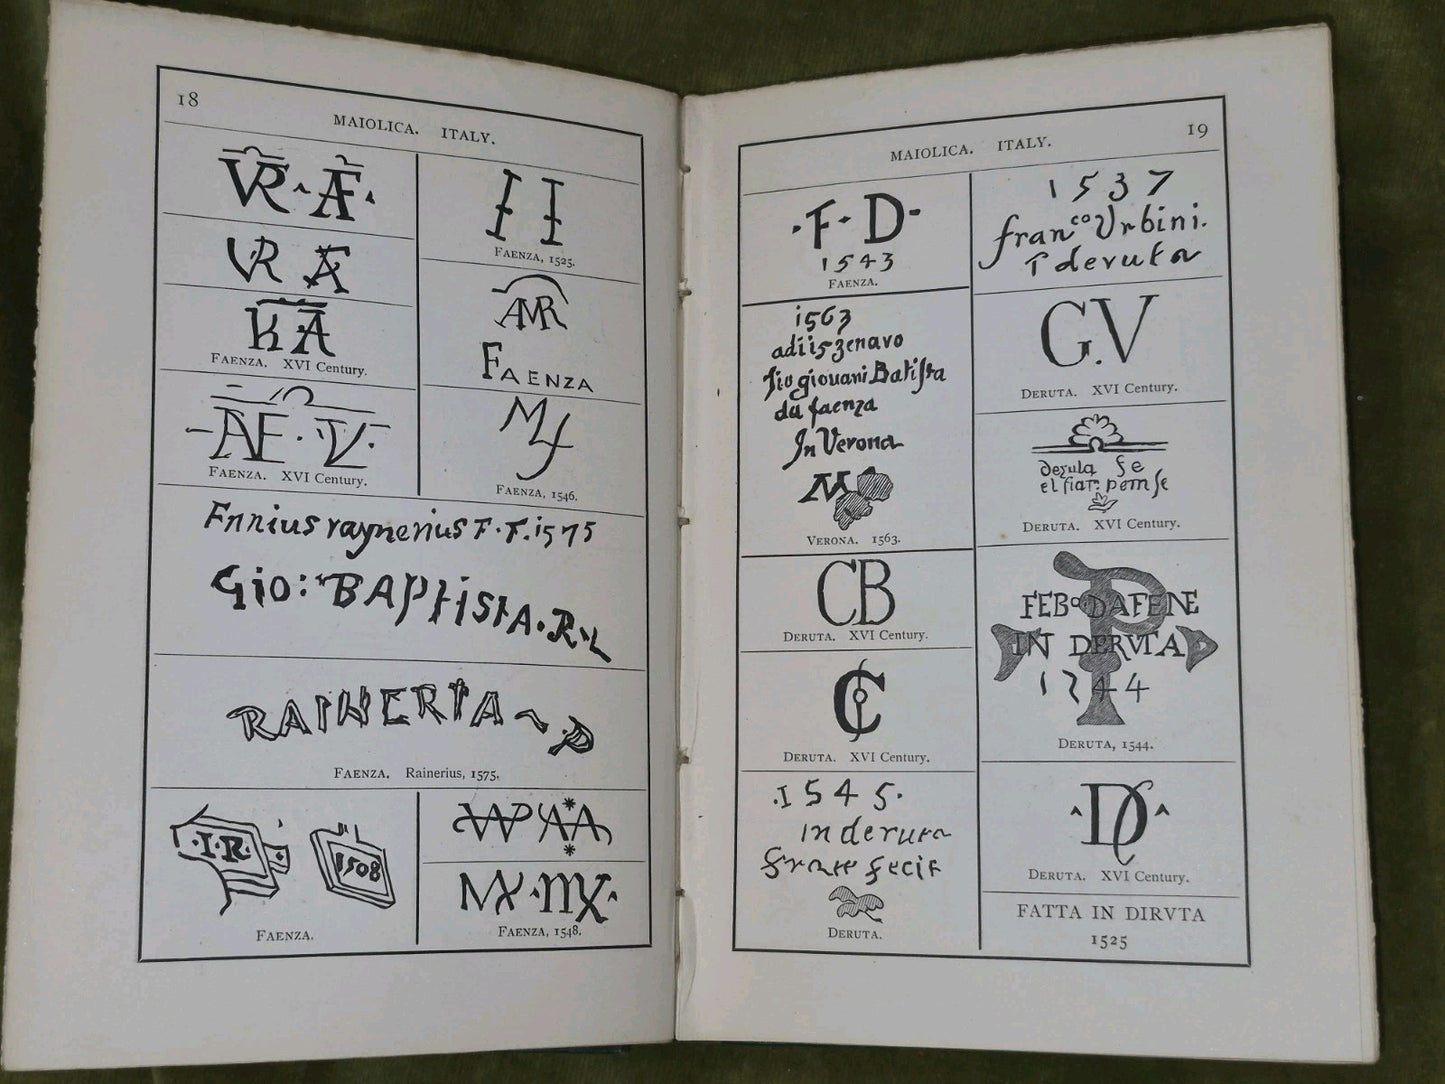 18
MAIOLICA. ITALY.
VR · AF ·
VR AF
KA
FAENZA. XVI Century.
FAENZA. XVI Century.
FAENZA, 1525.
FAENZA
FAENZA, 1546.
Ennius raynerius F. F. 1575
Gio: BAptistA. R.
RAINERIA ~ P
FAENZA. Rainerius, 1575.
· I · R ·
1508
FAENZA.
FAENZA, 1548.
MAIOLICA. ITALY.
19
· F · D ·
1543
FAENZA.
1563
adi 15 zenavo
giovani Batista
da faenza
In Verona
M
VERONA. 1563.
CB
DERUTA. XVI Century.
C
DERUTA. XVI Century.
· 1545 ·
in deruta
frate fecit
DERUTA.
1537
franco Urbini.
I deruta
G.V
DERUTA. XVI Century.
deruta fe
el fiar: pem fe
DERUTA. XVI Century.
P
FEBo DAFENE
IN DERVTA
1744
DERUTA, 1544.
DC
DERUTA. XVI Century.
FATTA IN DIRVTA
1525